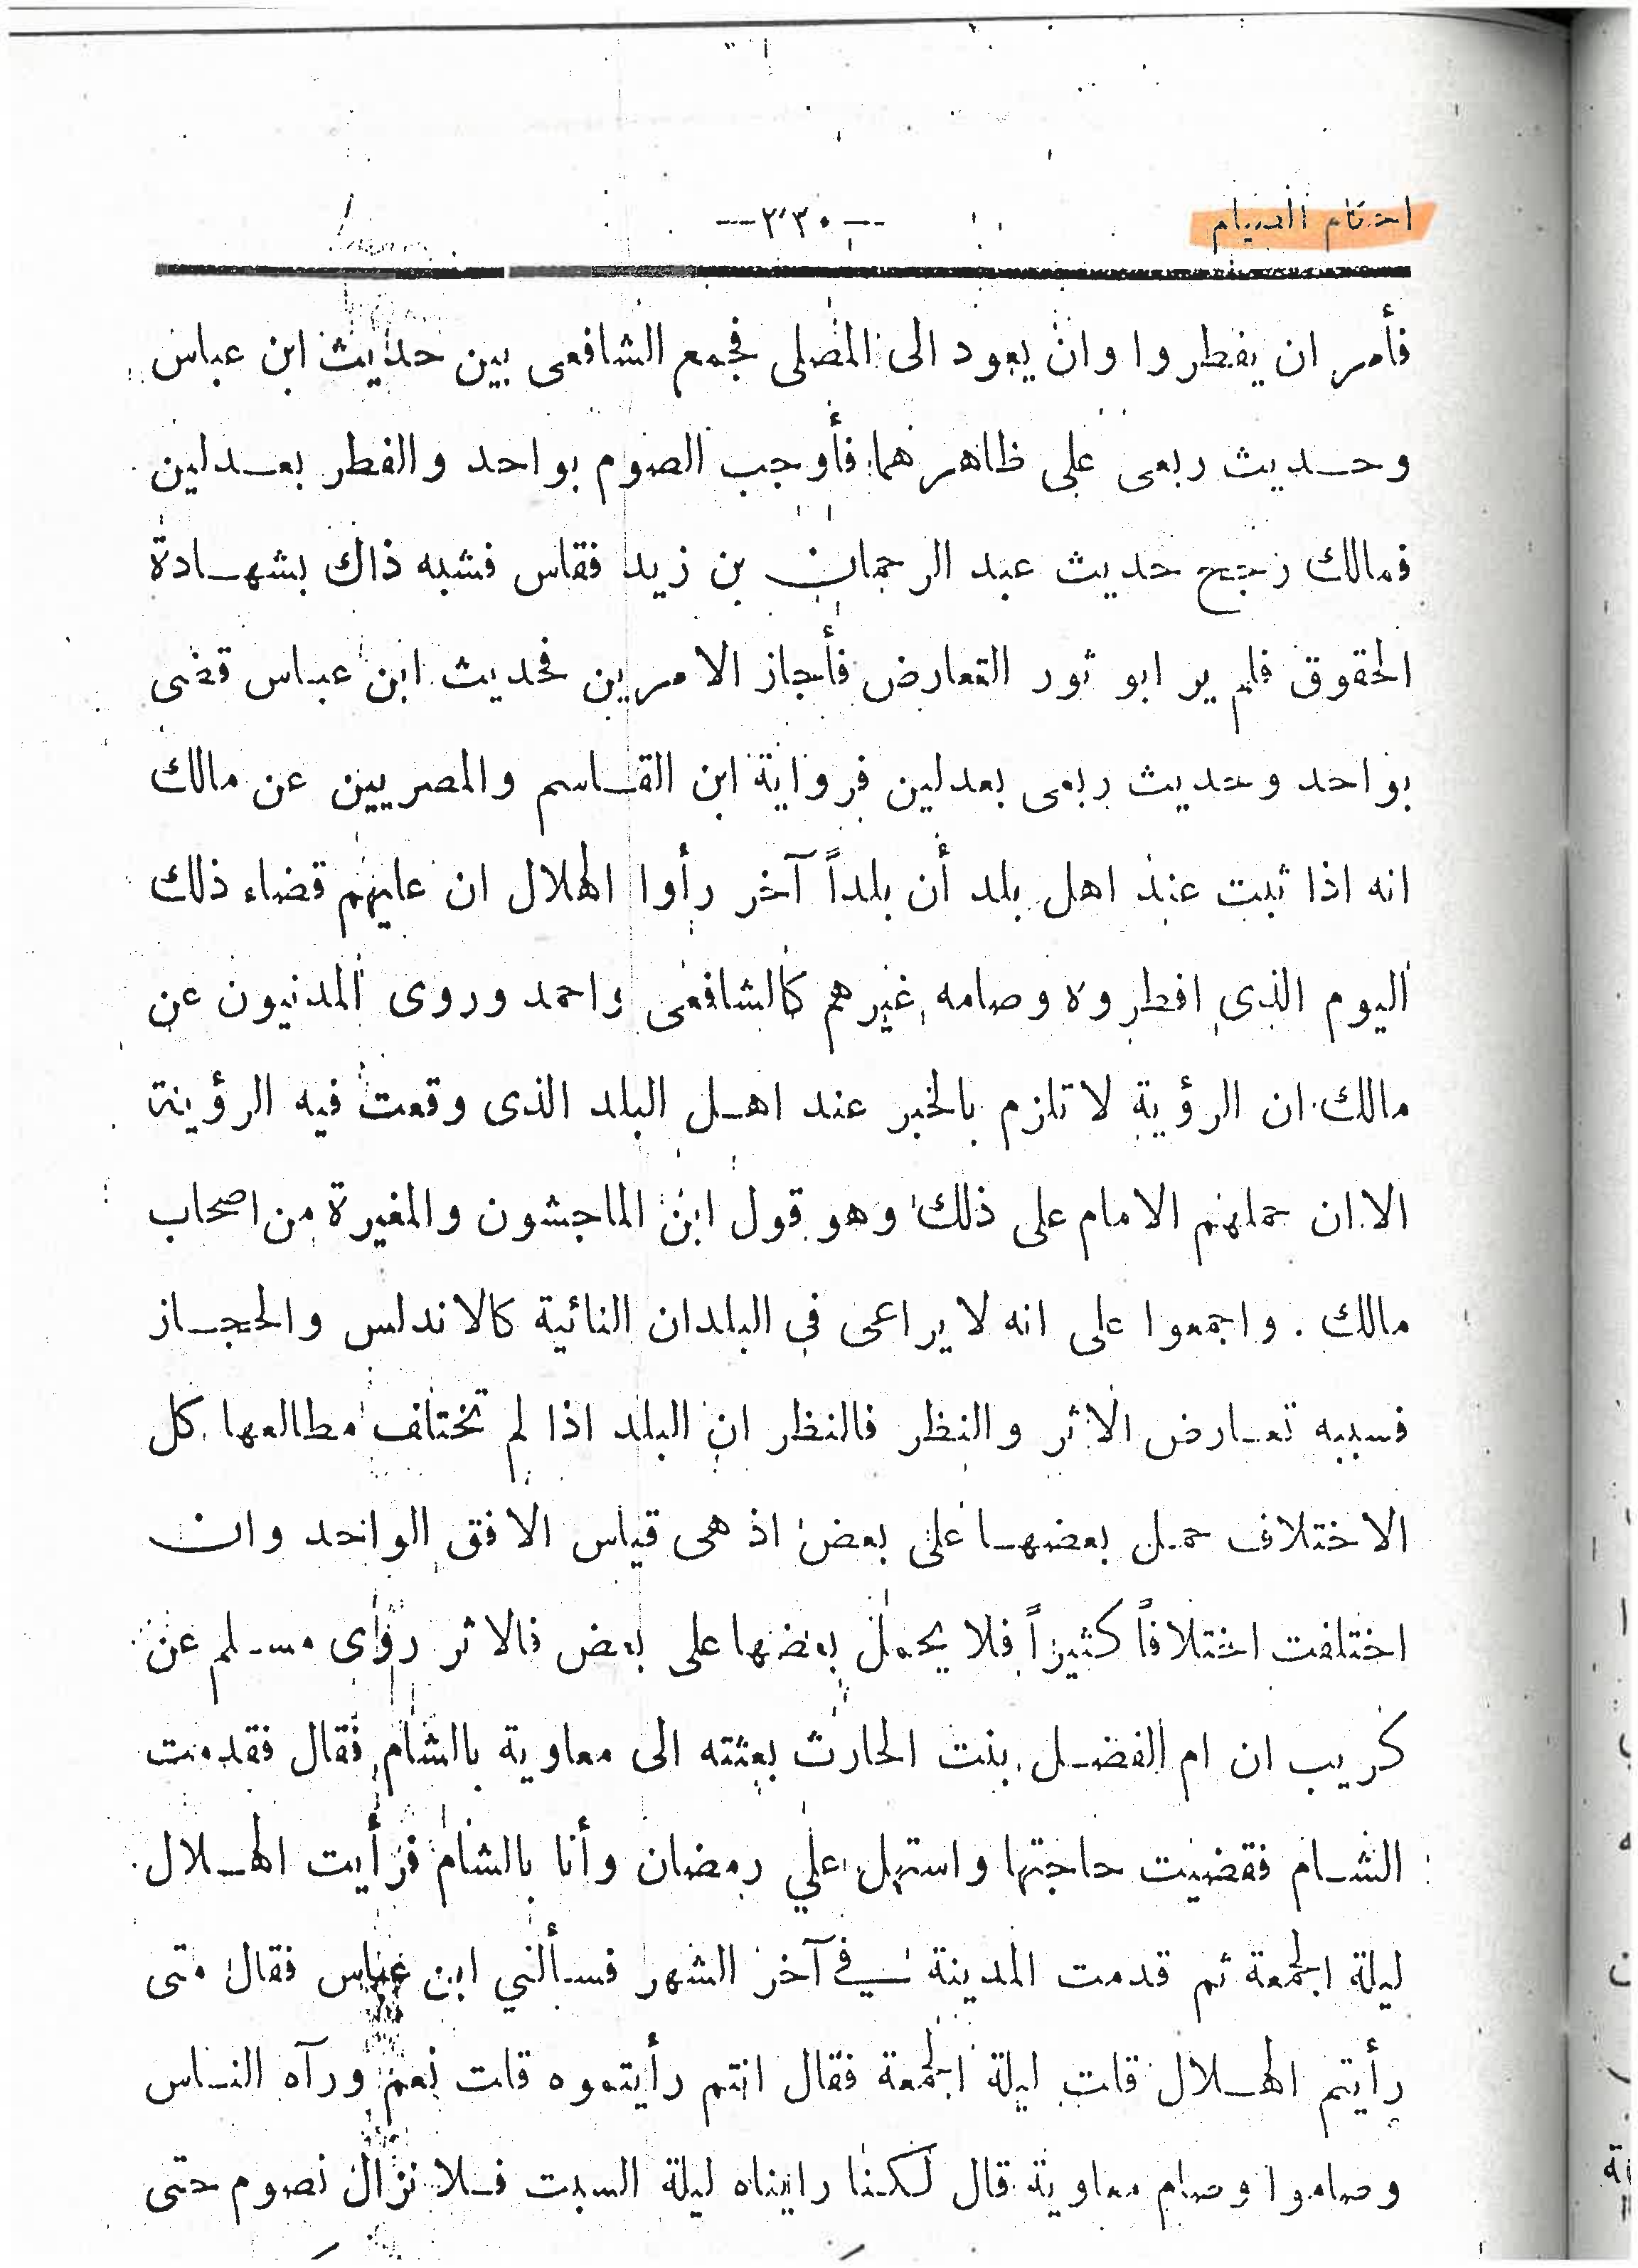 احكام الصيام —٢٣٠—
فأمر ان يفطروا وان يعود الى المصلى فجمع الشافعى بين حديث ابن عباس
وحديث ربعى على ظاهرهما فأوجب الصوم بواحد والفطر بعدلين
فمالك رجح حديث عبد الرحمان بن زيد فقاس فشبه ذاك بشهادة
الحقوق فلم ير ابو ثور التعارض فأجاز الامرين فحديث ابن عباس قضى
بواحد وحديث ربعى بعدلين فرواية ابن القاسم والمصريين عن مالك
انه اذا ثبت عند اهل بلد أن بلداً آخر رأوا الهلال ان عليهم قضاء ذلك
اليوم الذى افطروه وصامه غيرهم كالشافعى واحمد وروى المدنيون عن
مالك ان الرؤية لا تلزم بالخبر عند اهل البلد الذى وقعت فيه الرؤية
الا ان حملهم الامام على ذلك وهو قول ابن الماجشون والمغيرة من اصحاب
مالك . واجمعوا على انه لا يراعى في البلدان النائية كالاندلس والحجاز
فسببه تعارض الاثر والنظر فالنظر ان البلد اذا لم تختلف مطالعها كل
الاختلاف حمل بعضها على بعض اذ هى قياس الافق الواحد وان
اختلفت اختلافاً كثيراً فلا يحمل بعضها على بعض فالاثر رواى مسلم عن
كريب ان ام الفضل بنت الحارث بعثته الى معاوية بالشام فقال فقدمت
الشام فقضيت حاجتها واستهل علي رمضان وأنا بالشام فرأيت الهلال
ليلة الجمعة ثم قدمت المدينة في آخر الشهر فسألني ابن عباس فقال متى
رأيتم الهلال قلت ليلة الجمعة فقال انتم رأيتموه قلت نعم ورآه الناس
وصاموا وصام معاوية قال لكنا رايناه ليلة السبت فلا نزال نصوم حتى